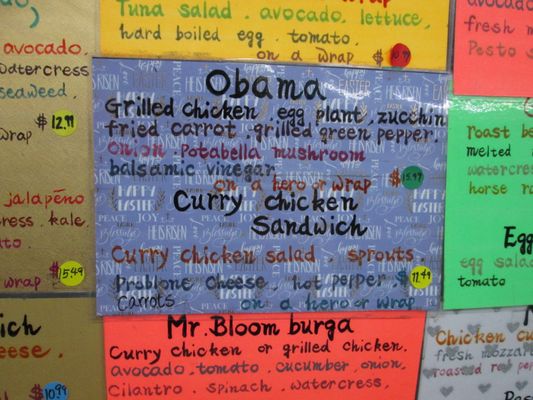 wrap
Tuna salad . avocado, lettuce,
hard boiled egg . tomato.
on a wrap $ 10.99
avocado.
watercress
seaweed.
wrap $ 12.99
jalapeño
cress . kale.
ato
wrap $ 15.49
ich
eese,
$ 10.99
Obama
Grilled chicken . egg plant, zucchin
fried carrot . grilled green pepper.
onion potabella mushroom
balsamic vinegar
on a hero or wrap $ 15.99
Curry chicken
Sandwich
Curry chicken salad . sprouts.
prablone cheese, hot peper. $ 11.49
carrots. on a hero or wrap
Mr. Bloom burga
Curry chicken or grilled chicken.
avocado . tomato . cucumber . onion.
Cilantro . spinach . watercress.
avocado
fresh m
Pesto s
roast be
melted
watercress
horse ra
Egg
egg salad
tomato
Chicken cu
fresh mozzar
roasted red pe